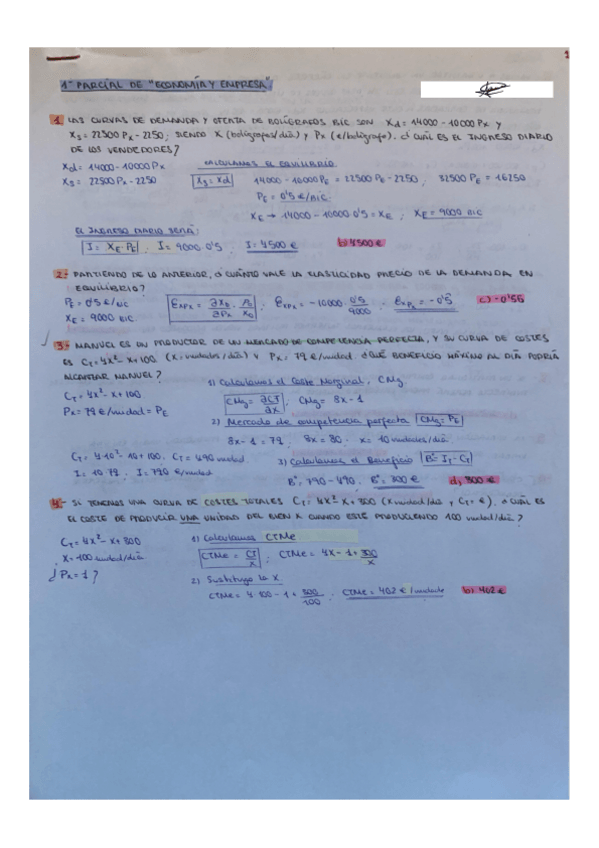 1
1º PARCIAL DE "ECONOMÍA Y EMPRESA".
1. LAS CURVAS DE DEMANDA Y OFERTA DE BOLÍGRAFOS BIC SON Xd = 14000 - 10000 Px Y
Xs = 22500 Px - 2250; SIENDO X (bolígrafos/día) Y Px (€/bolígrafo). ¿CUÁL ES EL INGRESO DIARIO
DE LOS VENDEDORES?
Xd = 14000 - 10000 Px
CALCULAMOS EL EQUILIBRIO
Xs = 22500 Px - 2250
Xs = Xd
14000 - 10000 PE = 22500 PE - 2250; 32500 PE = 16250
PE = 0'5 €/BIC
XE → 14000 - 10000 0'5 = XE; XE = 9000 BIC
EL INGRESO DIARIO SERÁ:
I = XE · PE; I = 9000 · 0'5; I = 4500 €
b) 4500 €
2.- PARTIENDO DE LO ANTERIOR, ¿CUÁNTO VALE LA ELASTICIDAD PRECIO DE LA DEMANDA EN
EQUILIBRIO?
PE = 0'5 €/BIC
XE = 9000 BIC.
EXPx = ∂XD/∂Px · P0/X0; EXPx = -10000 · 0'5/9000; EXPx = -0'5
c) -0'55
3.- MANUEL ES UN PRODUCTOR DE UN MERCADO DE COMPETENCIA PERFECTA, Y SU CURVA DE COSTES
ES CT = 4X² - X + 100 (X unidades/día) Y Px = 79 €/unidad. ¿QUÉ BENEFICIO MÁXIMO AL DÍA PODRÍA
ALCANZAR MANUEL?
1) Calculamos el Coste Marginal, CMg
CT = 4X² - X + 100
Px = 79 €/unidad = PE
CMg = ∂CT/∂X; CMg = 8X - 1
2) Mercado de competencia perfecta CMg = PE
8X - 1 = 79; 8X = 80 · X = 10 unidades/día.
CT = 4·10² - 10 + 100; CT = 490 unidad
3) Calculamos el Beneficio B = IT - CT
I = 10·79; I = 790 €/unidad
Bº = 790 - 490; Bº = 300 €
d) 300 €
4.- SI TENEMOS UNA CURVA DE COSTES TOTALES CT = 4X² - X + 300 (X unidad/día Y CT = €), ¿CUÁL ES
EL COSTE DE PRODUCIR UNA UNIDAD DEL BIEN X CUANDO ESTÉ PRODUCIENDO 100 unidad/día?
1) Calculamos CTMe
CT = 4X² - X + 300
X = 100 unidad/día
CTMe = CT/X; CTMe = 4X - 1 + 300/X
¿Px = 1?
2) Sustituyo la X
CTMe = 4·100 - 1 + 300/100; CTMe = 402 €/unidade
b) 402 €